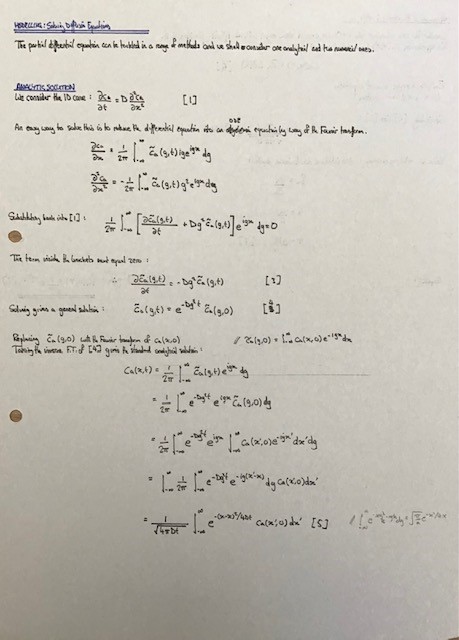 MODELLING: Solving Diffusion Equations
The partial differential equation can be tackled in a range of methods and we shall consider one analytical and two numerical ones.
ANALYTIC SOLUTION
We consider the 1D case : ∂Ca/∂t = D ∂²Ca/∂x² [1]
An easy way to solve this is to reduce the differential equation into an ODE equation by way of the Fourier transform.
∂Ca/∂x = 1/2π ∫_{-∞}^{∞} C̃a(g,t) ig e^{igx} dg
∂²Ca/∂x² = -1/2π ∫_{-∞}^{∞} C̃a(g,t) g² e^{igx} dg
Substituting back into [1] : 1/2π ∫_{-∞}^{∞} [∂C̃a(g,t)/∂t + Dg² C̃a(g,t)] e^{igx} dg = 0
The term inside the brackets must equal zero :
∴ ∂C̃a(g,t)/∂t = -Dg² C̃a(g,t) [2]
Solving gives a general solution : C̃a(g,t) = e^{-Dg²t} C̃a(g,0)
Replacing C̃a(g,0) with the Fourier transform of Ca(x,0) // C̃a(g,0) = ∫_{-∞}^{∞} Ca(x,0) e^{-igx} dx
Taking the inverse F.T. of [4] gives the standard analytical solution :
Ca(x,t) = 1/2π ∫_{-∞}^{∞} C̃a(g,t) e^{igx} dg
= 1/2π ∫_{-∞}^{∞} e^{-Dg²t} e^{igx} C̃a(g,0) dg
= 1/2π ∫_{-∞}^{∞} e^{-Dg²t} e^{igx} ∫_{-∞}^{∞} Ca(x',0) e^{-igx'} dx' dg
= ∫_{-∞}^{∞} 1/2π ∫_{-∞}^{∞} e^{-Dg²t} e^{-ig(x'-x)} dg Ca(x',0) dx'
= 1/√4πDt ∫_{-∞}^{∞} e^{-(x-x')²/4Dt} Ca(x',0) dx' [5]